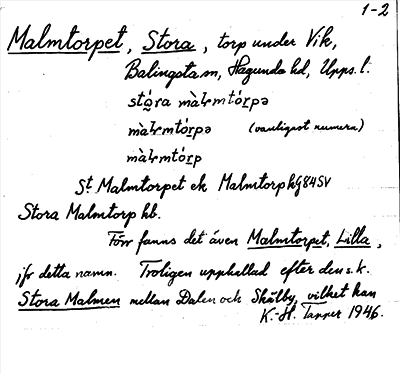 1-2
Malmtorpet, Stora, torp under Vik,
Balingsta sn, Hagunda hd, Upps. l.
stó̬ra màɫmtórpə
màɫmtórpə (vanligast numera)
màɫmtórp
St. Malmtorpet ek Malmtorp hg84SV
Stora Malmtorp hb.
Förr fanns det även Malmtorpet, Lilla,
jfr detta namn. Troligen uppkallad efter den s.k.
Stora Malmen mellan Dalen och Skälby, vilket kan
K.-H. Tanner 1946.